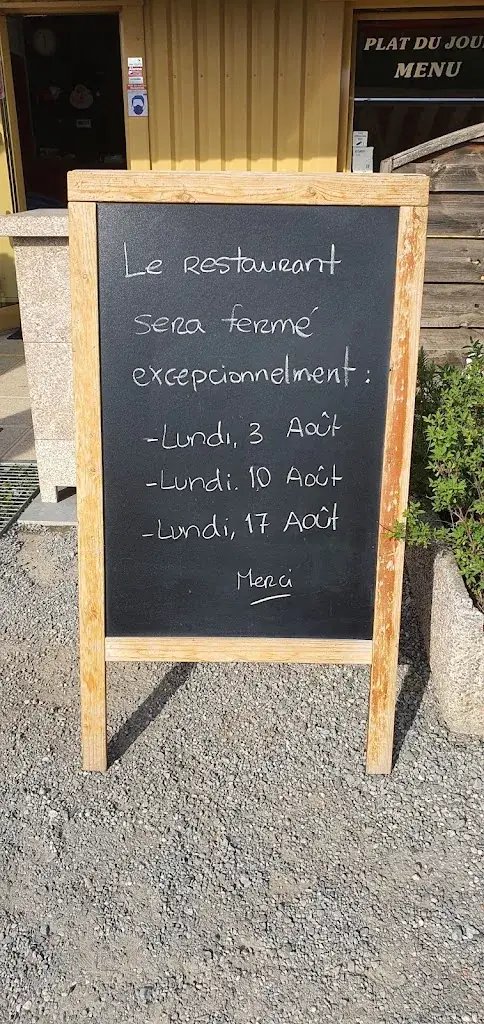 PLAT DU JOU
MENU
Le restaurant
sera fermé
excepcionnelment :
-Lundi, 3 Août
-Lundi. 10 Août
-Lundi, 17 Août
Merci